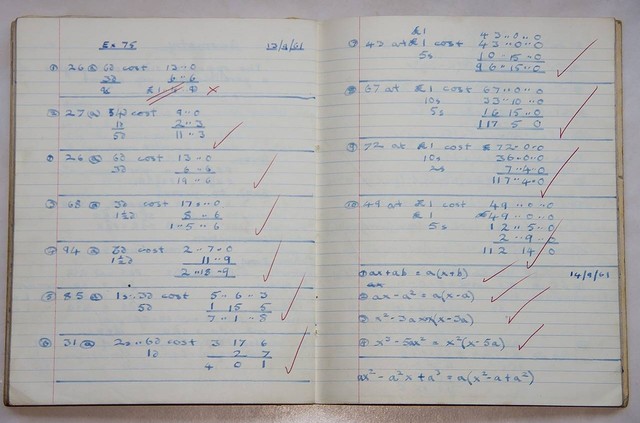 Ex 75 12/9/61
① 26 @ 6d cost 13 .. 0
3d 6 .. 6
② 27 @ cost 9 .. 0
1d 2 .. 3
5d 11 .. 3
26 @ 6d cost 13 .. 0
3d 6 .. 6
19 .. 6
③ 68 @ 3d cost 17 .. 0
1½d 8 .. 6
1 .. 5 .. 6
94 @ 6d cost 2 .. 7 .. 0
1½d 11 .. 9
2 .. 18 .. 9
⑤ 85 @ 1s .. 3d cost 5 .. 6 .. 3
5d 1 15 5
7 .. 1 .. 8
⑥ 31 @ 2s .. 6d cost 3 17 6
1d 2 7
4 0 1
£1 43 .. 0 .. 0
⑦ 43 at £1 cost 43 .. 0 .. 0
5s 10 .. 15 .. 0
96 .. 15 .. 0
67 at £1 cost 67 .. 0 .. 0
10s 33 .. 10 .. 0
5s 16 15 .. 0
117 5 0
72 at £1 cost £72 .. 0 .. 0
10s 36 .. 0 .. 0
2s 7 .. 4 .. 0
117 .. 4 .. 0
⑩ 49 at £1 cost 49 .. 0 .. 0
£1 49 .. 0 .. 0
5s 12 .. 5 .. 0
2 .. 9 .. 0
112 14 0
① ax + ab = a(x+b) 14/9/61
② ax - a² = a(x-a)
③ x² - 3ax = x(x-3a)
④ x³ - 5ax² = x²(x-5a)
ax² - a²x + a³ = a(x² - a + a²)